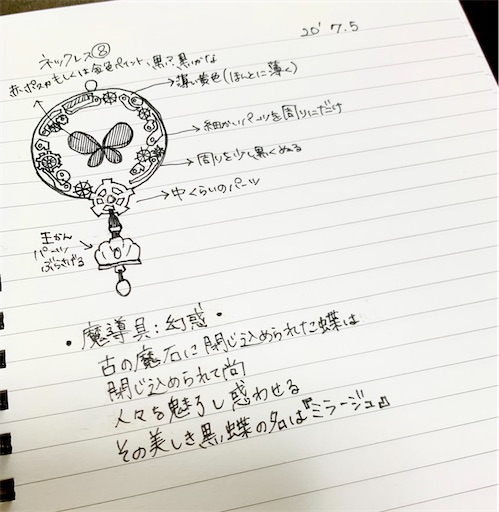 20' 7.5
ネックレス⑧
赤・ボスカもしくは金色ペイント、黒?黒いかな
薄い黄色(ほんとに薄く)
細かいパーツを周りにだけ
周りを少し黒くぬる
中くらいのパーツ
王かん
パーツ
ぶらさげる
・魔導具:幻惑・
古の魔石に閉じ込められた蝶は
閉じ込められて尚
人々を魅了し惑わせる
その美しき黒い蝶の名は『ミラージュ』